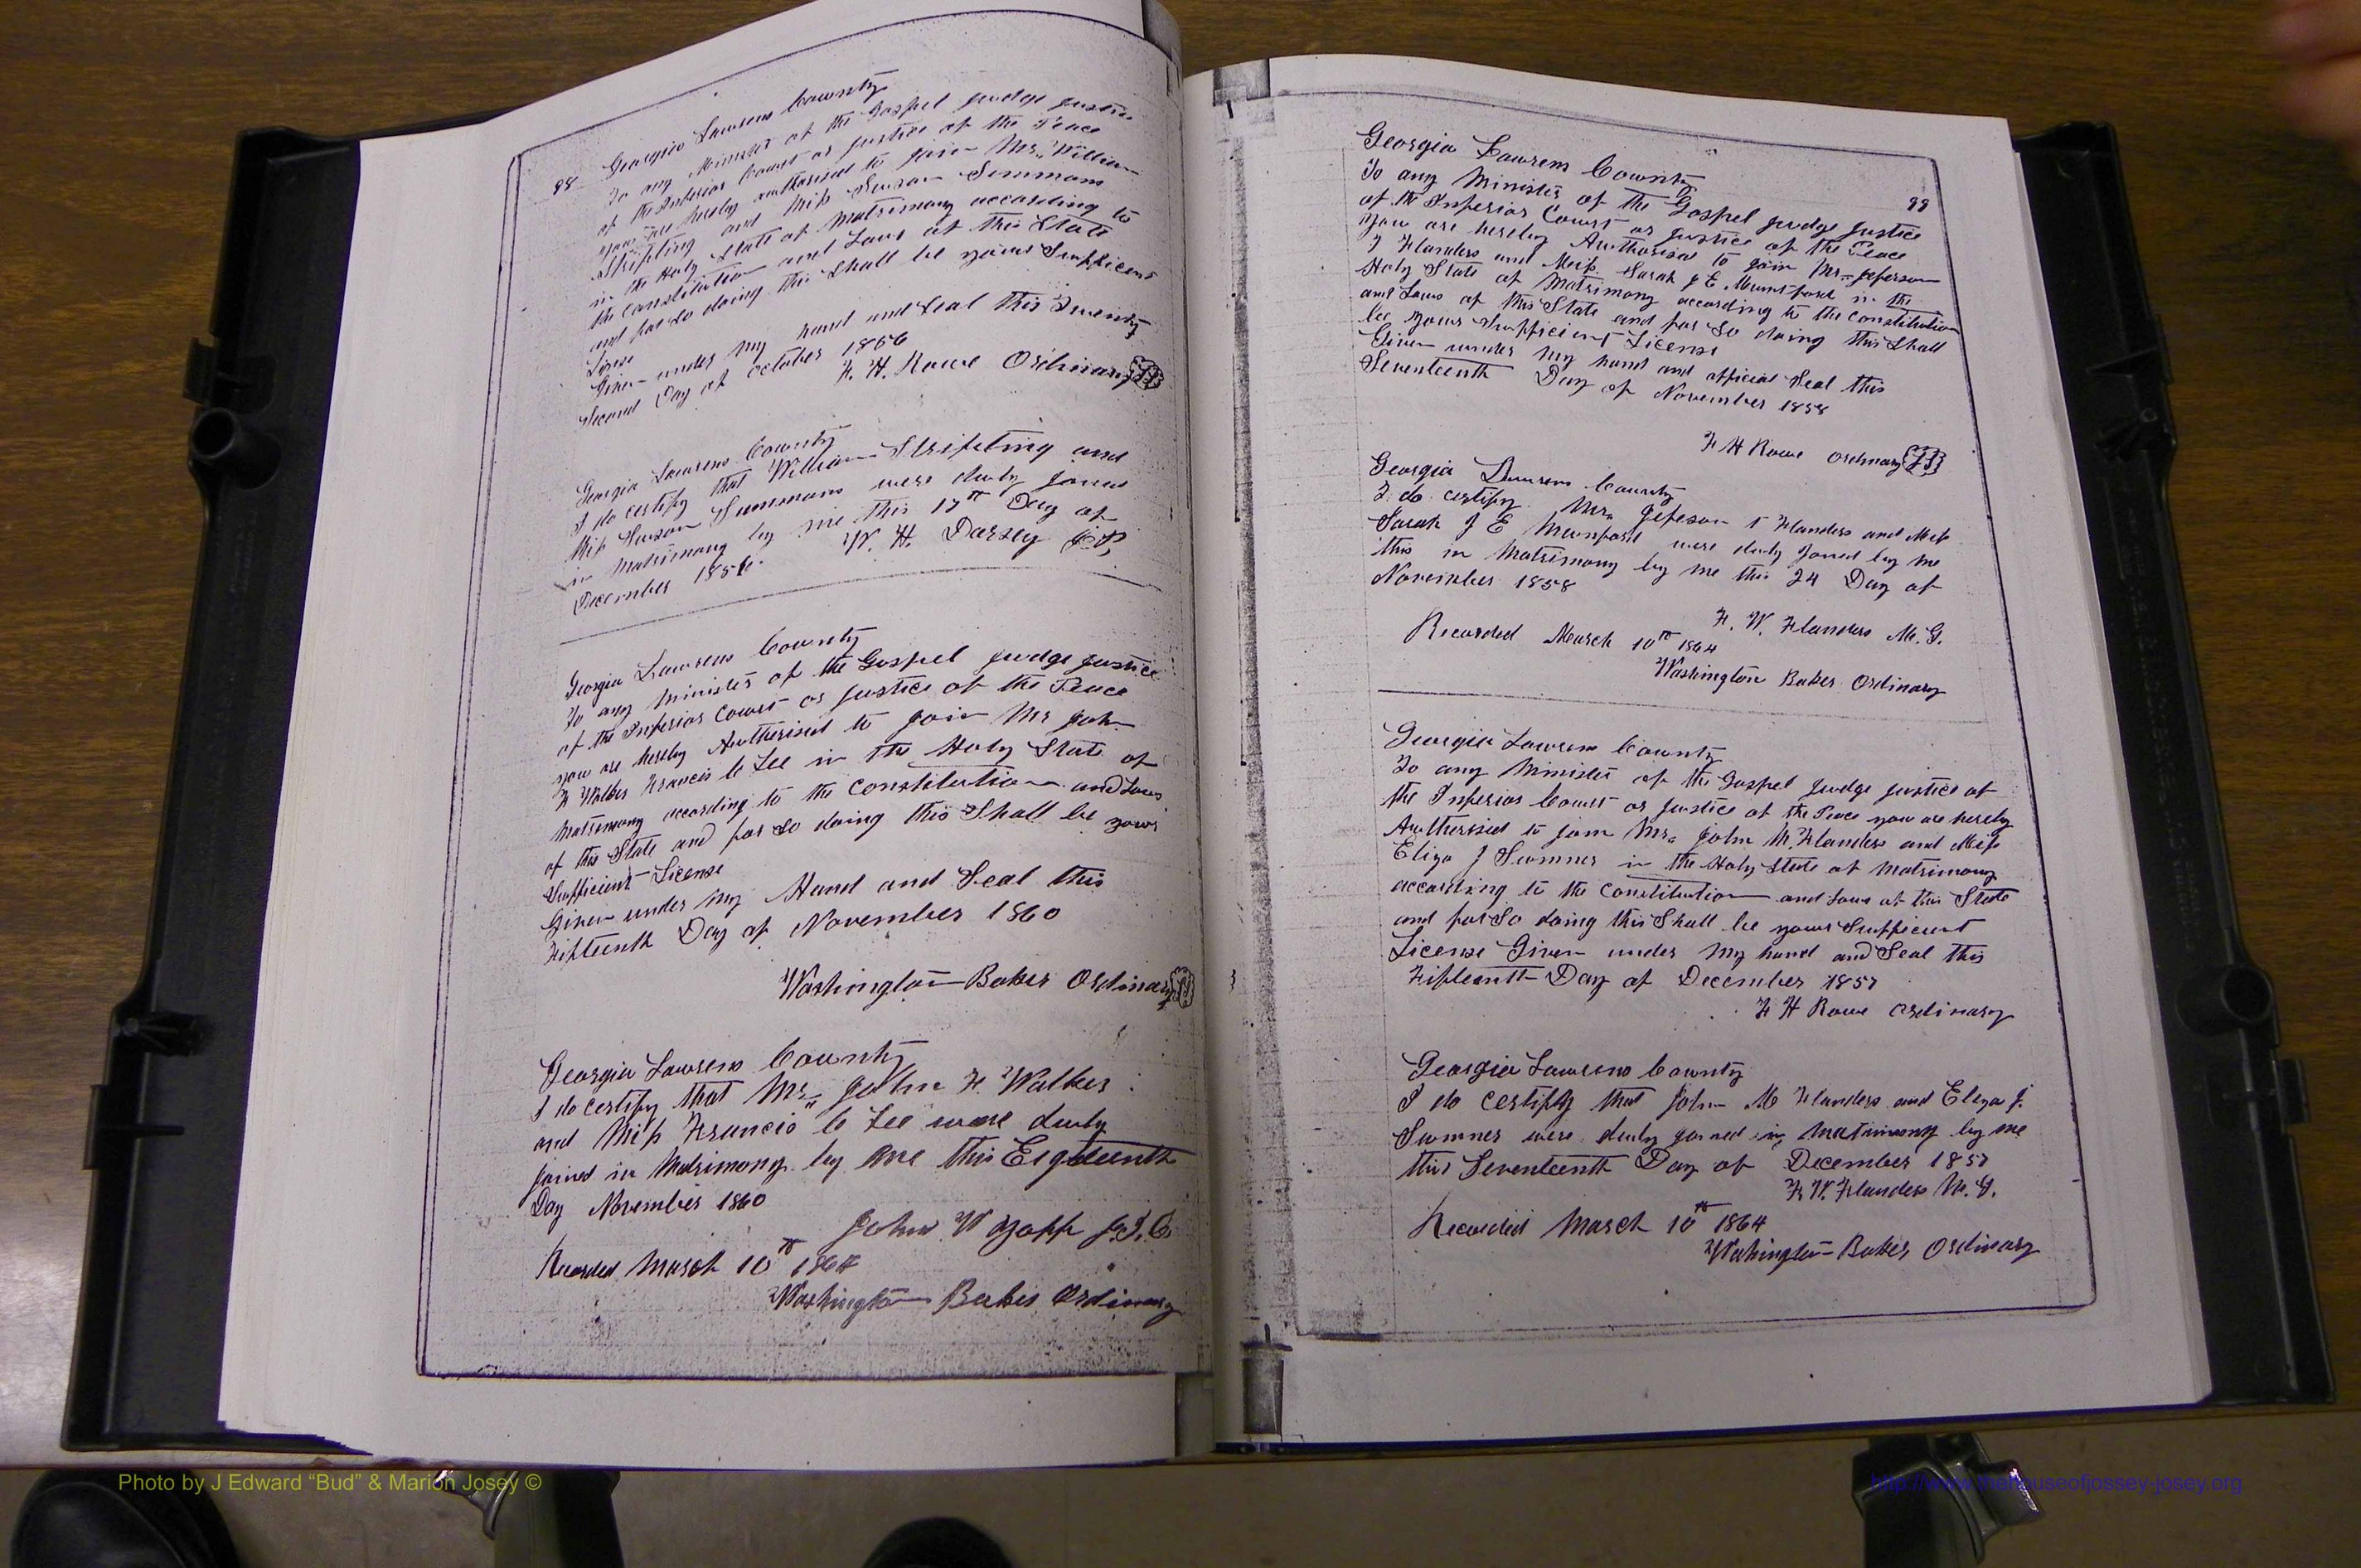 98
Georgia Laurens County
To any Minister of the Gospel Judge Justice
of the Inferior Court or Justice of the Peace
you are hereby Authorised to join Mr. William
Stripling and Miss Susan Summons
in the Holy State of Matrimony according to
the Constitution and Laws of this State
and for so doing this Shall be your Sufficient
Given under my hand and Seal this Twenty
Second Day of October 1856
F. H. Rowe Ordinary
Georgia Laurens County
I do certify that William Stripling and
Miss Susan Summons were duly joined
in Matrimony by me this 17th Day of
December 1856.
W. H. Darsey J.P.
Georgia Laurens County
To any Minister of the Gospel Judge Justice
of the Inferior Court or Justice of the Peace
you are hereby Autherised to join Mr John
F Walker Francis C Lee in the Holy State of
Matrimony according to the Constitution and Laws
of this State and for so doing this Shall be your
Sufficient License
Given under my Hand and Seal this
Fifteenth Day of November 1860
Washington Baker Ordinary
Georgia Laurens County
I do certify that Mr. John F. Walker
and Miss Francis C Lee were duly
joined in Matrimony by me this Eighteenth
Day November 1860
John W Yopp J.I.C.
Recorded March 10th 1864
Washington Baker Ordinary
99
Georgia Laurens County
To any Minister of the Gospel Judge Justice
of the Inferior Court or Justice of the Peace
you are hereby Authorised to join Mr. Jefferson
J Flanders and Miss Sarah J E Mumford in the
Holy State of Matrimony according to the Constitution
and Laws of this State and for so doing this Shall
be your Sufficient License
Given under my hand and official Seal this
Seventeenth Day of November 1858
F H Rowe Ordinary
Georgia Laurens County
I do certify Mr. Jefeson J Flanders and Miss
Sarah J E Mumford were duly Joined by me
this in Matrimony by me this 24 Day of
November 1858
F. W. Flanders M. G.
Recorded March 10th 1864
Washington Baker Ordinary
Georgia Laurens County
To any Minister of the Gospel Judge Justice of
the Inferior Court or Justice of the Peace you are hereby
Autherised to join Mr. John M. Flanders and Miss
Eliza J Sumner in the Holy State of Matrimony
according to the Constitution and Laws of this State
and for So doing this Shall be your Sufficient
License Given under my hand and Seal this
Fifteenth Day of December 1857
F H Rowe Ordinary
Georgia Laurens County
I do certify that John M Flanders and Eliza J.
Sumner were duly joined in Matrimony by me
this Seventeenth Day of December 1857
F. W. Flanders M. G.
Recorded March 10th 1864
Washington Baker Ordinary
Photo by J Edward “Bud” & Marion Josey ©
http://www.thehouseofjossey-josey.org